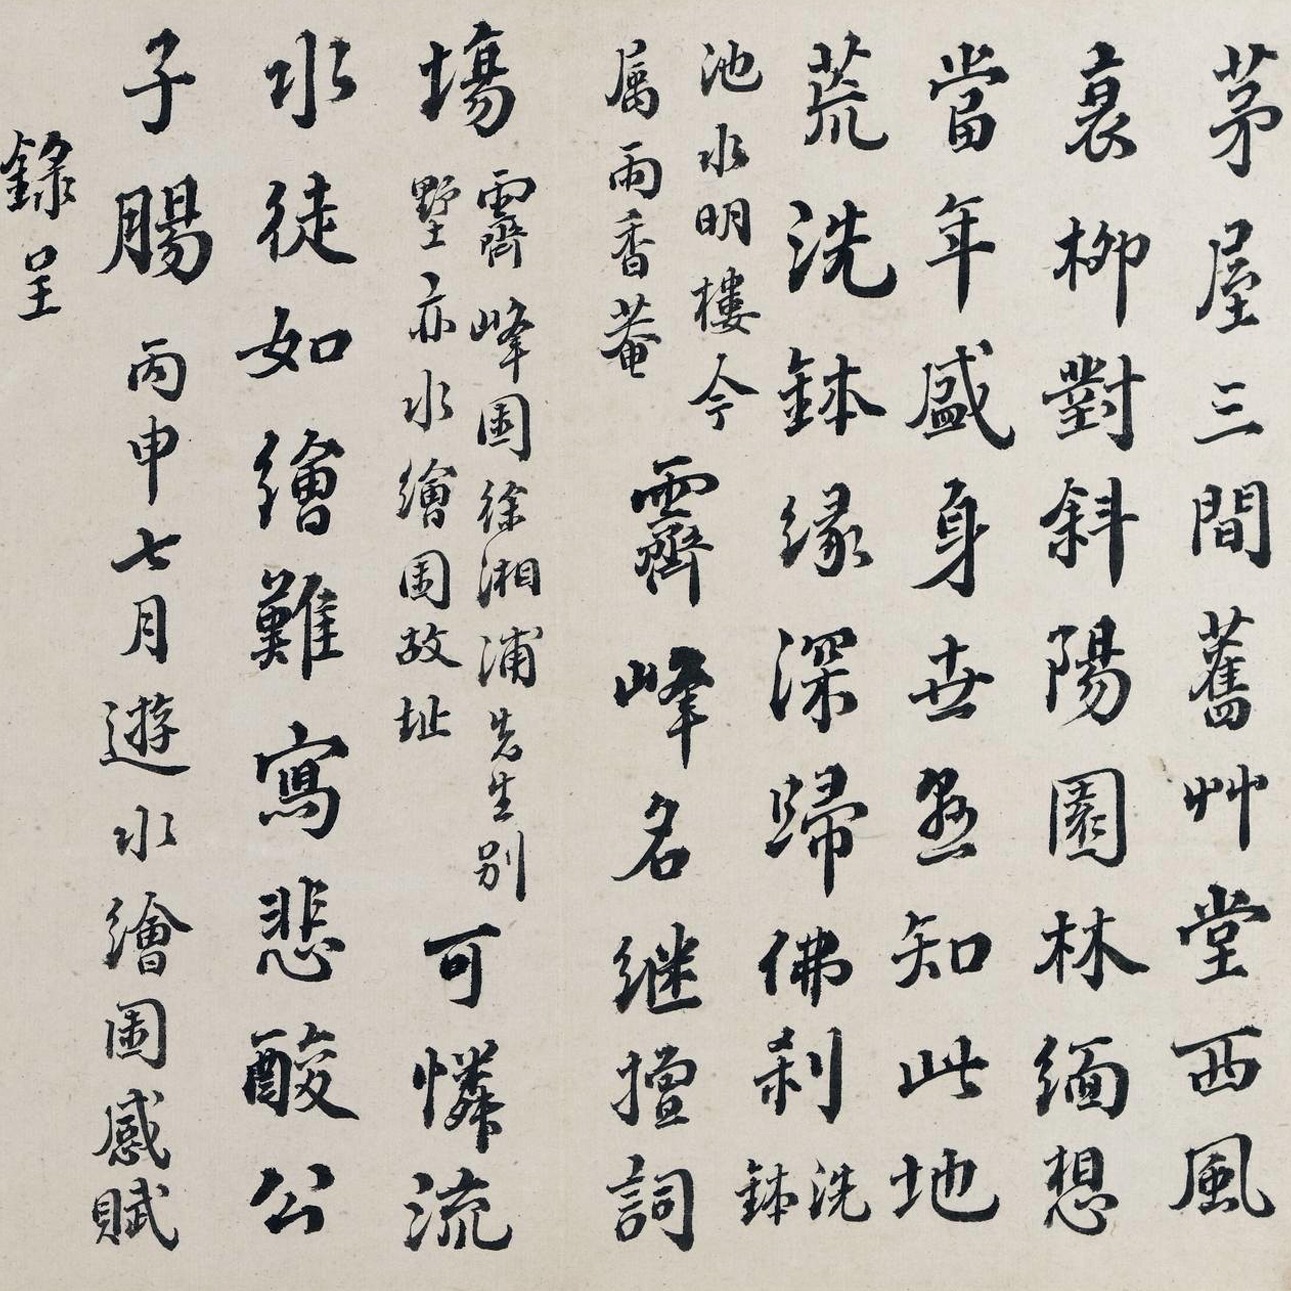 茅屋三間舊艸堂西風
裏柳對斜陽園林緬想
當年盛身世
知此地
荒洗鉢緣深歸佛刹洗鉢
池水明樓今
屬雨香菴
霽峰名継擅詞
塲霽峰園徐湘浦先生別
墅亦水繪園故址
可憐流
水徒如繪難寫悲酸公
子腸丙申七月遊水繪園感賦
錄呈